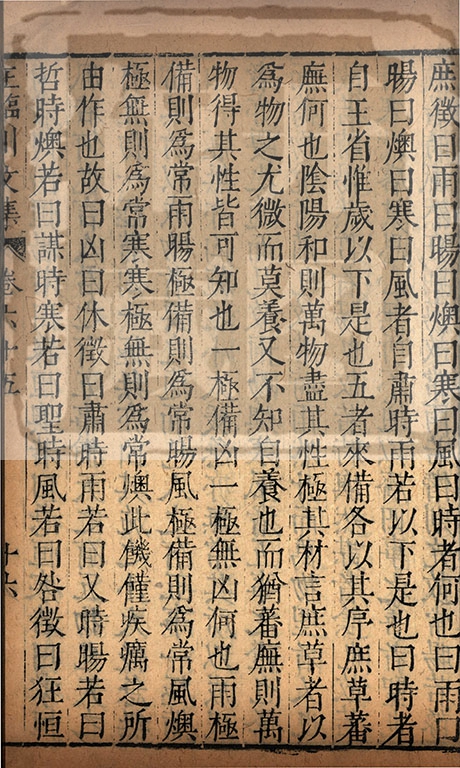 庶徵曰雨曰暘曰燠曰寒曰風曰時者何也曰雨曰
暘曰燠曰寒曰風者自肅時雨若以下是也曰時者
自王省惟歲以下是也五者來備各以其序庶草蕃
廡何也陰陽和則萬物盡其性極其材言庶草者以
爲物之尤微而莫養又不知自養也而猶蕃廡則萬
物得其性皆可知也一極備凶一極無凶何也雨極
備則爲常雨暘極備則爲常暘風極備則爲常風燠
極無則爲常寒寒極無則爲常燠此饑僅疾癘之所
由作也故曰凶曰休徵曰肅時雨若曰乂時暘若曰
哲時燠若曰謀時寒若曰聖時風若曰咎徵曰狂恒
王臨川文集 卷六十五 十六